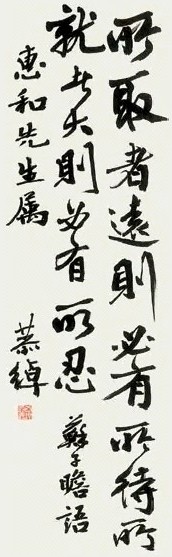 所取者遠則必有所待所
就者大則必有所忍 蘇子瞻語
惠和先生属
慕綽